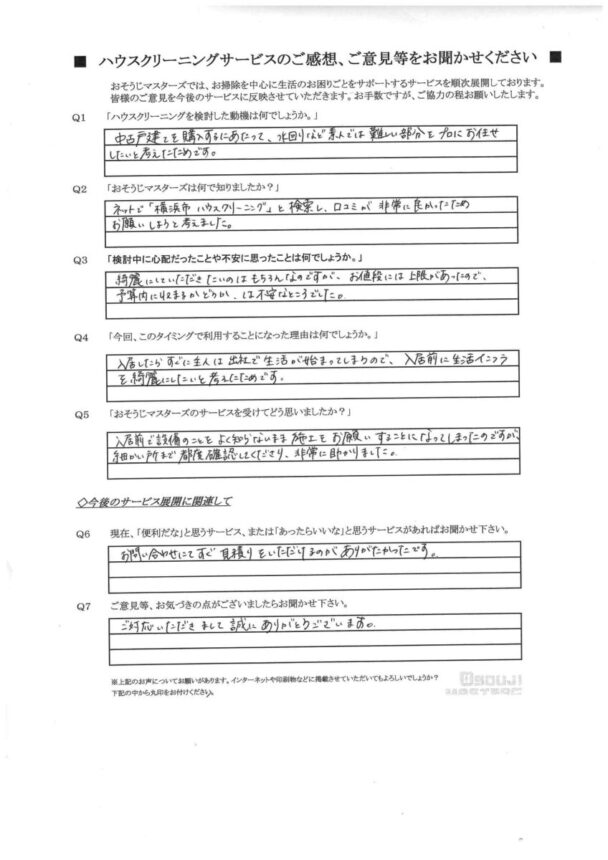 ■ ハウスクリーニングサービスのご感想、ご意見等をお聞かせください ■
おそうじマスターズでは、お掃除を中心に生活のお困りごとをサポートするサービスを順次展開しております。
皆様のご意見を今後のサービスに反映させていただきます。お手数ですが、ご協力の程お願いいたします。
Q1 「ハウスクリーニングを検討した動機は何でしょうか。」
中古戸建てを購入するにあたって、水回りなど素人では難しい部分をプロにお任せ
したいと考えたためです。
Q2 「おそうじマスターズは何で知りましたか？」
ネットで「横浜市 ハウスクリーニング」と検索し、口コミが非常に良かったため
お願いしようと考えました。
Q3 「検討中に心配だったことや不安に思ったことは何でしょうか。」
綺麗にしていただきたいのはもちろんなのですが、お値段には上限があったので、
予算内に収まるかどうか、は不安なところでした。
Q4 「今回、このタイミングで利用することになった理由は何でしょうか。」
入居したらすぐに主人は出社で生活が始まってしまうので、入居前に生活インフラ
を綺麗にしたいと考えたためです。
Q5 「おそうじマスターズのサービスを受けてどう思いましたか？」
入居前で設備のことをよく知らないまま施工をお願いすることになってしまったのですが、
細かい所まで都度確認してくださり、非常に助かりました。
◇今後のサービス展開に関連して
Q6 現在、「便利だな」と思うサービス、または「あったらいいな」と思うサービスがあればお聞かせ下さい。
お問い合わせにてすぐ見積りをいただけるのがありがたかったです。
Q7 ご意見等、お気づきの点がございましたらお聞かせ下さい。
ご対応いただきまして誠にありがとうございます。
※上記のお声についてお願いがあります。インターネットや印刷物などに掲載させていただいてもよろしいでしょうか？
下記の中から丸印をお付けください。
OSOUJI
MASTERS